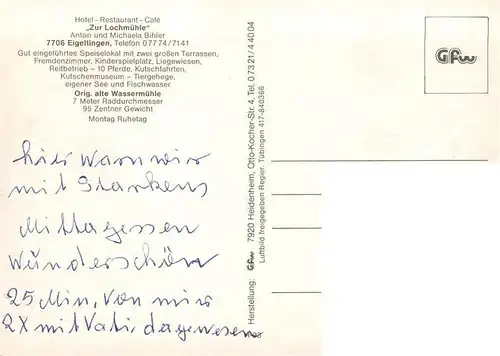 Hotel - Restaurant - Café
„Zur Lochmühle"
Anton und Michaela Bihler
7706 Eigeltingen, Telefon 07774/7141
Gut eingeführtes Speiselokal mit zwei großen Terrassen,
Fremdenzimmer, Kinderspielplatz, Liegewiesen,
Reitbetrieb – 10 Pferde, Kutschfahrten,
Kutschenmuseum – Tiergehege,
eigener See und Fischwasser
Orig. alte Wassermühle
7 Meter Raddurchmesser
95 Zentner Gewicht
Montag Ruhetag
hier warn wir
mit Starkens
Mittagessen
Wunderschön
25 Min, von mir
2X mit Vati, dagewesen
Herstellung: Gfw 7920 Heidenheim, Otto-Kocher-Str. 4, Tel. 0 73 21/4 40 04
Luftbild freigegeben Regier. Tübingen 417-840366
Gfw